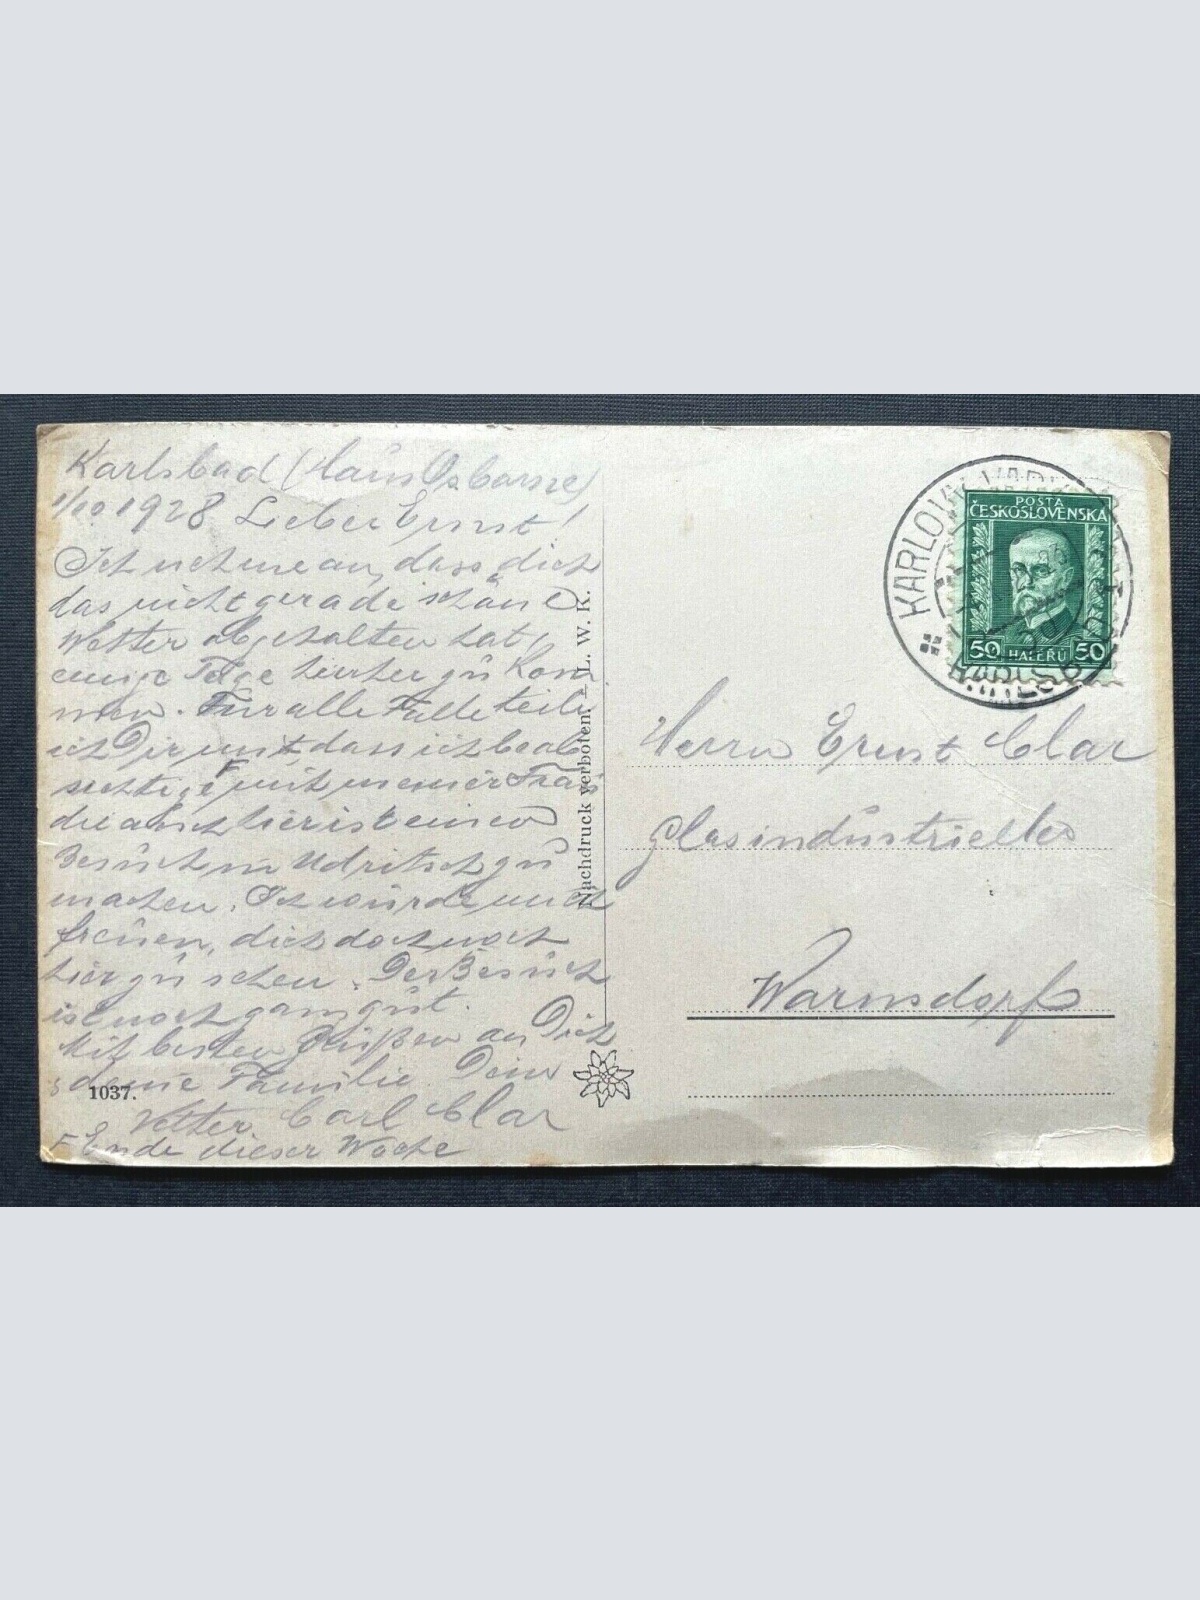 Karlsbad (Haus Osborne)
1/10 1928 Lieber Ernst!
Ich nehme an, dass dich
das nicht gerade schöne
Wetter abgehalten hat,
einige Tage hierher zu kom
men. Für alle Fälle teile
ich Dir mit, dass ich beab
sichtige, mit meiner Frau
die auch hier ist einen
Besuch in Udritsch zu
machen. Ich würde mich
freuen, dich doch noch
hier zu sehen. Der Besuch
ist noch ganz gut.
Mit besten Grüßen an Dich
deine Familie Dein
1037.
Vetter Carl Clar
F Ende dieser Woche
Nachdruck verboten. L. W. K.
KARLOVY VARY
KARLSBAD
POŠTA
ČESKOSLOVENSKÁ
50 HALÉŘŮ 50
Herrn Ernst Clar
Glasindustrieller
Warnsdorf